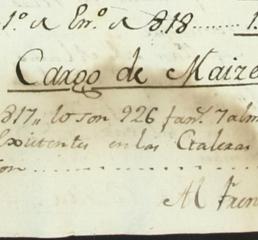 1.º de En.º de 818........ 1.
Cargo de Maize
817,, lo son 926 fan.s 7 alm
Existentes en las
on..................
Al Fren